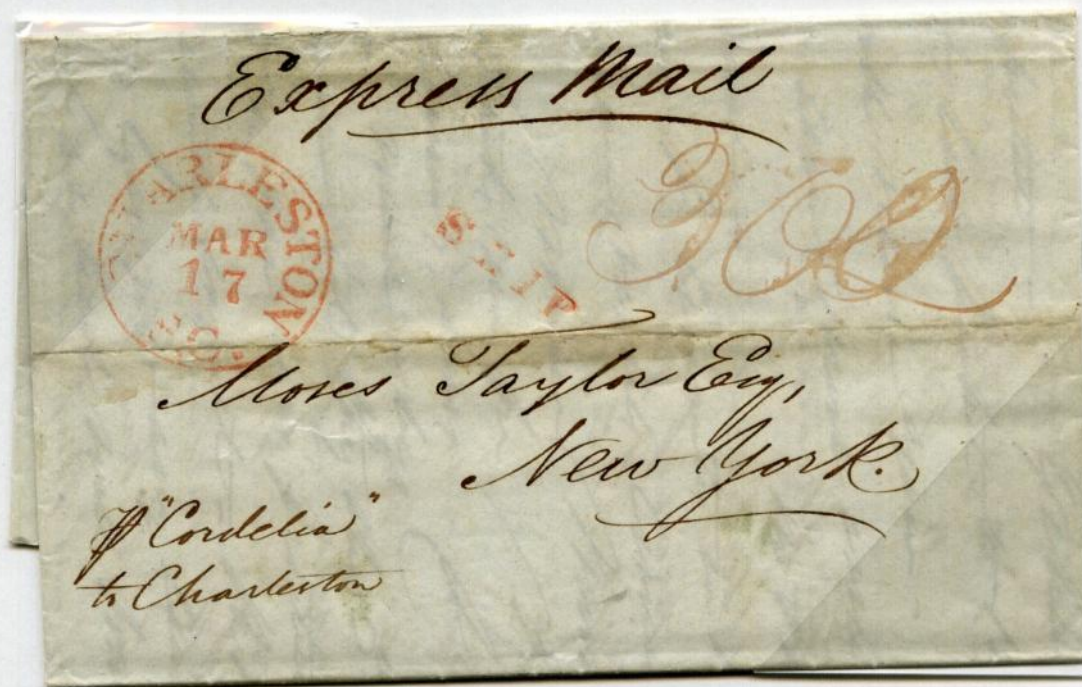 Express Mail
CHARLESTON
MAR
17
S.C.
SHIP
Moses Taylor Esq,
New York.
"Cordelia"
to Charleston